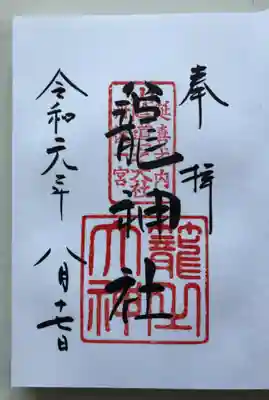 奉拝
延喜式内
籠神社
籠之大神
令和元年
八月十七日